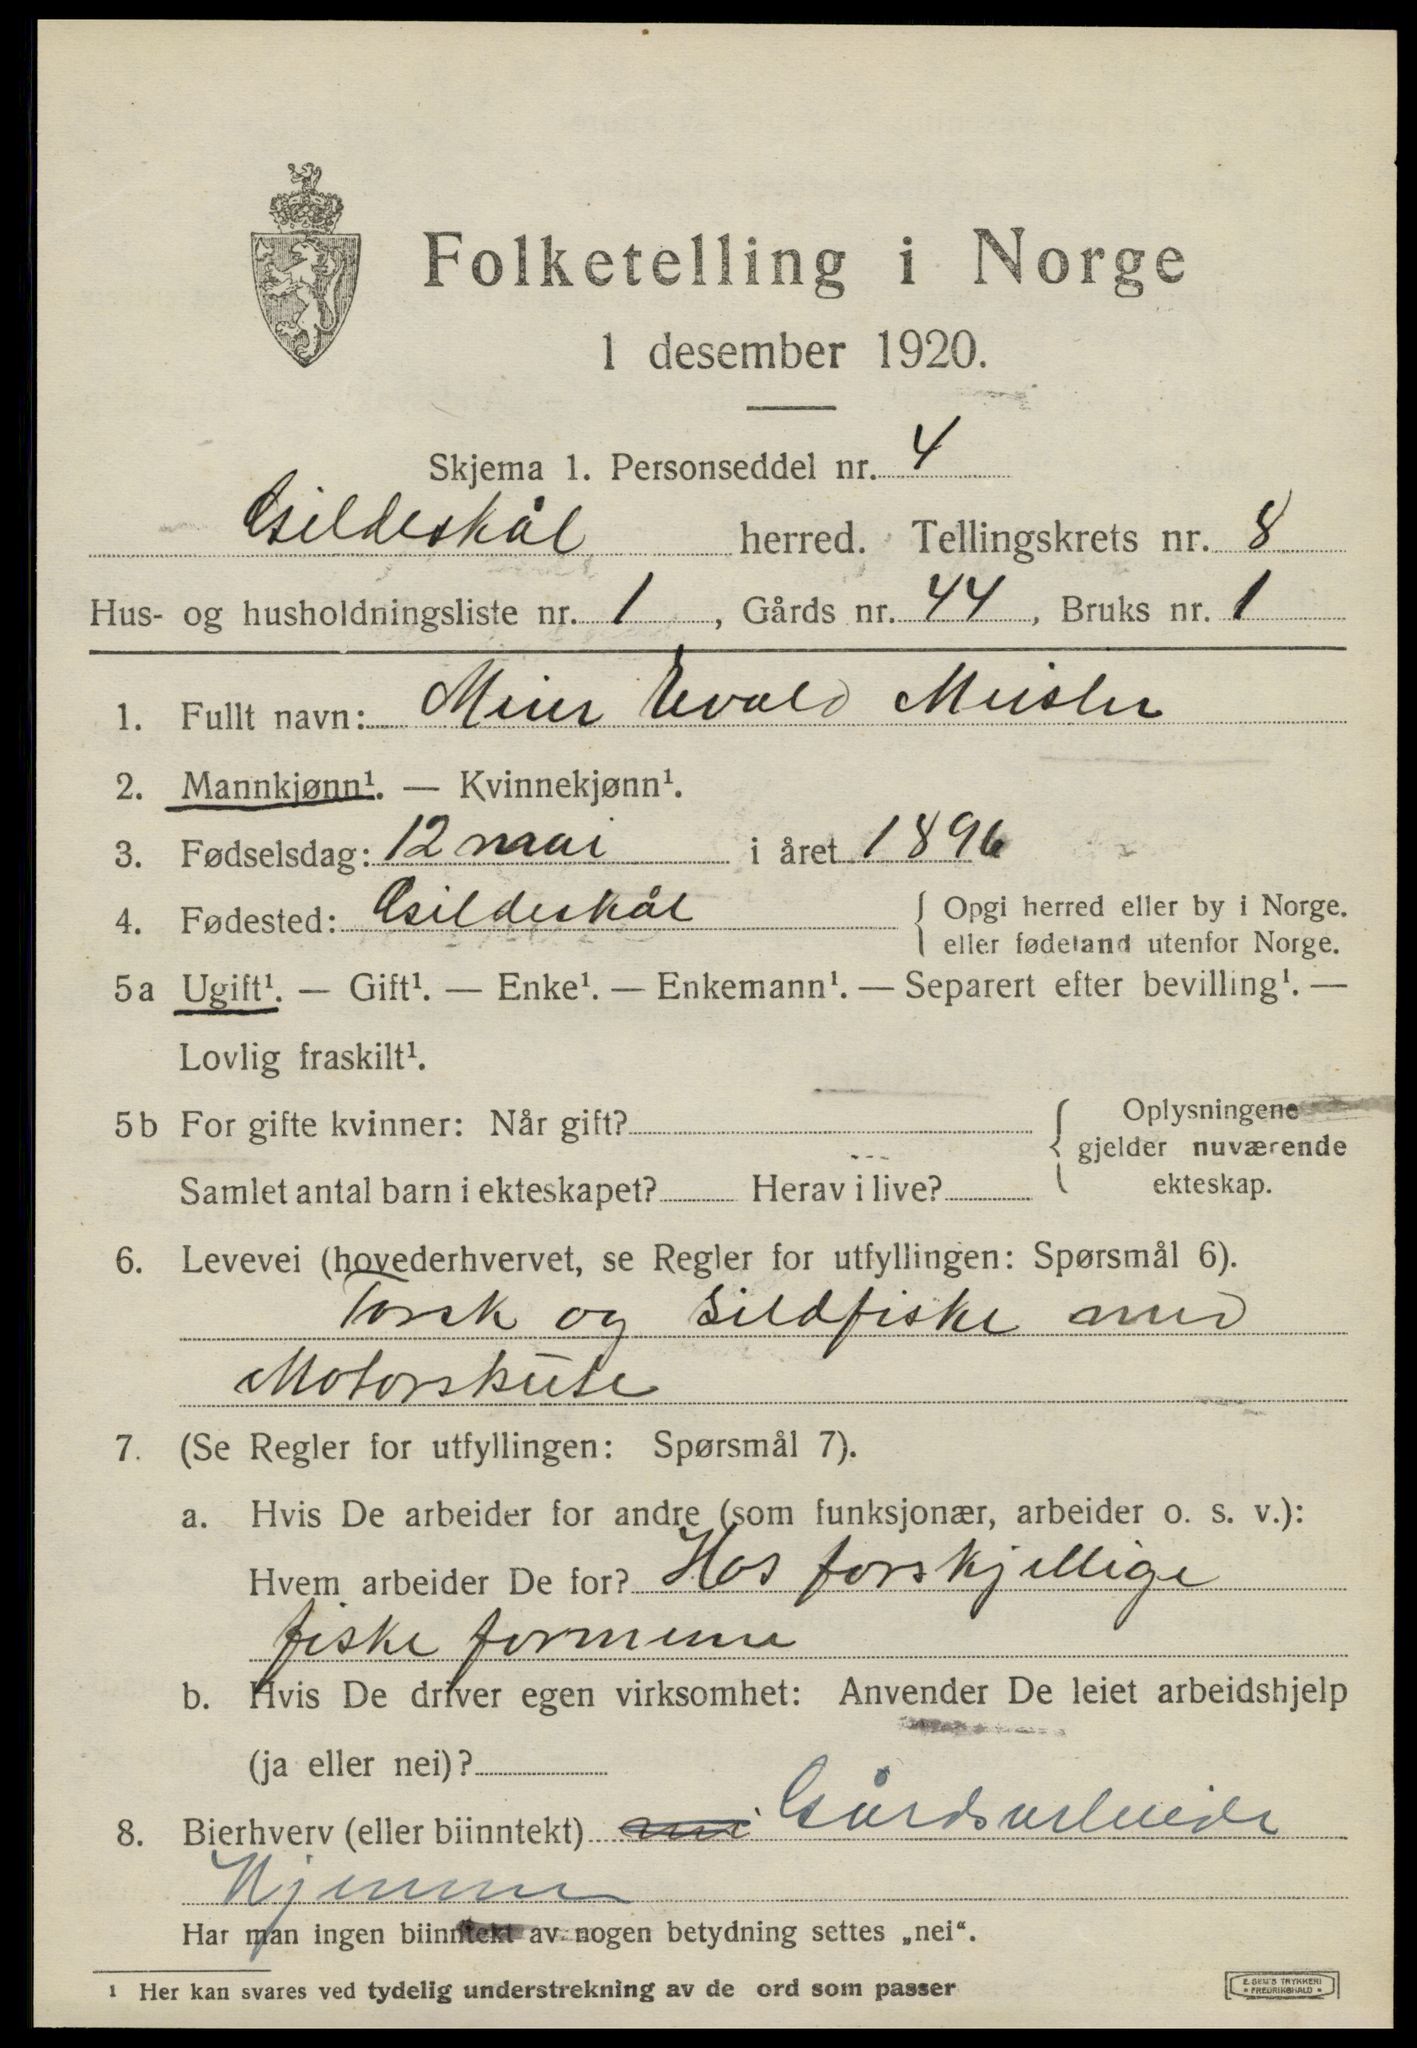 Folketelling i Norge
1 desember 1920.
Skjema 1. Personseddel nr. 4
Gildeskål herred. Tellingskrets nr. 8
Hus- og husholdningsliste nr. 1, Gårds nr. 44, Bruks nr. 1
1. Fullt navn: Meier Evald Meisler
2. Mannkjønn¹. — Kvinnekjønn¹.
3. Fødselsdag: 12 mai i året 1896
4. Fødested: Gildeskål { Opgi herred eller by i Norge.
eller fødeland utenfor Norge.
5a Ugift¹. — Gift¹. — Enke¹. — Enkemann¹. — Separert efter bevilling¹. —
Lovlig fraskilt¹.
5b For gifte kvinner: Når gift? { Oplysningene
gjelder nuværende
Samlet antal barn i ekteskapet? Herav i live? ekteskap.
6. Levevei (hovederhvervet, se Regler for utfyllingen: Spørsmål 6).
Torsk og sildfiske med
Motorskute
7. (Se Regler for utfyllingen: Spørsmål 7).
a. Hvis De arbeider for andre (som funksjonær, arbeider o. s. v.):
Hvem arbeider De for? Hos forskjellige
fiske formenn
b. Hvis De driver egen virksomhet: Anvender De leiet arbeidshjelp
(ja eller nei)?
8. Bierhverv (eller biinntekt) nei Gårdsarbeide
Hjemme
Har man ingen biinntekt av nogen betydning settes „nei“.
¹ Her kan svares ved tydelig understrekning av de ord som passer
E. SEM'S TRYKKERI
* FREDRIKSHALD *